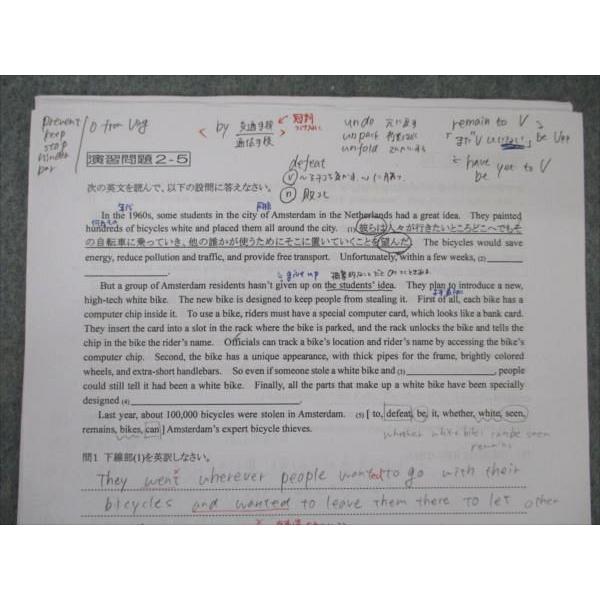 prevent
keep
stop
hinder
/ O from Ving
< by 交通手段
通信手段 >
← 冠詞
つけない
undo 元に戻す
unpack
unfold
remain to V
be Vpp
= have yet to V
be
defeat
ⓥ
ⓝ 敗北
演習問題2-5
次の英文を読んで、以下の設問に答えなさい。
In the 1960s, some students in the city of Amsterdam in the Netherlands had a great idea. They painted
hundreds of bicycles white and placed them all around the city. (1)彼らは人々が行きたいところどこへでもそ
の自転車に乗っていき、他の誰かが使うためにそこに置いていくことを望んだ. The bicycles would save
energy, reduce pollution and traffic, and provide free transport. Unfortunately, within a few weeks, (2)
give up
But a group of Amsterdam residents hasn't given up on the students' idea. They plan to introduce a new,
high-tech white bike. The new bike is designed to keep people from stealing it. First of all, each bike has a
computer chip inside it. To use a bike, riders must have a special computer card, which looks like a bank card.
They insert the card into a slot in the rack where the bike is parked, and the rack unlocks the bike and tells the
chip in the bike the rider's name. Officials can track a bike's location and rider's name by accessing the bike's
computer chip. Second, the bike has a unique appearance, with thick pipes for the frame, brightly colored
wheels, and extra-short handlebars. So even if someone stole a white bike and (3), people
could still tell it had been a white bike. Finally, all the parts that make up a white bike have been specially
designed (4).
Last year, about 100,000 bicycles were stolen in Amsterdam. (5) [ to, defeat, be, it, whether, white, seen,
remains, bikes, can ] Amsterdam's expert bicycle thieves.
whether white bikes can be seen
remains
問1 下線部(1)を英訳しなさい。
They went wherever people wanted to go with their
bicycles and wanted to leave them there to let other